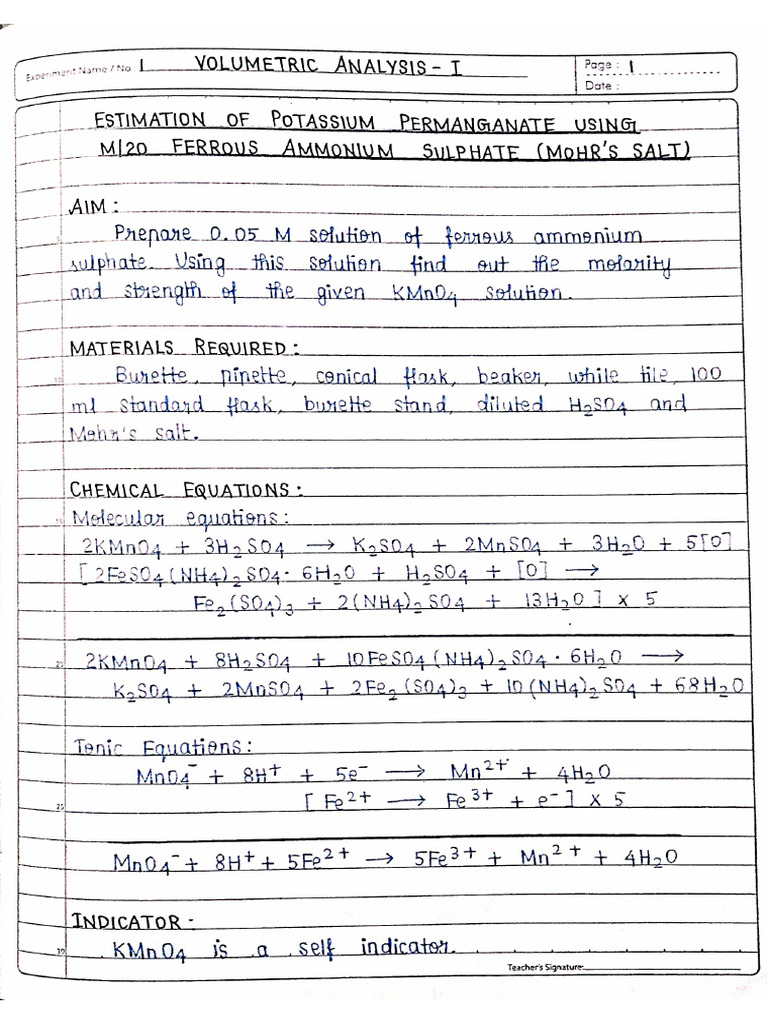 Experiment Name / No. 1 VOLUMETRIC ANALYSIS - I
Page : 1
Date :
ESTIMATION OF POTASSIUM PERMANGANATE USING
M/20 FERROUS AMMONIUM SULPHATE (MOHR'S SALT)
AIM :
Prepare 0.05 M solution of ferrous ammonium
sulphate. Using this solution find out the molarity
and strength of the given KMnO4 solution.
MATERIALS REQUIRED :
Burette, pipette, conical flask, beaker, while tile, 100
ml standard flask, burette stand, diluted H2SO4 and
Mohr's salt.
CHEMICAL EQUATIONS :
Molecular equations :
2KMnO4 + 3H2SO4 → K2SO4 + 2MnSO4 + 3H2O + 5[O]
[2FeSO4(NH4)2SO4·6H2O + H2SO4 + [O] →
Fe2(SO4)3 + 2(NH4)2SO4 + 13H2O] x 5
2KMnO4 + 8H2SO4 + 10FeSO4(NH4)2SO4·6H2O →
K2SO4 + 2MnSO4 + 2Fe2(SO4)3 + 10(NH4)2SO4 + 68H2O
Ionic Equations :
MnO4⁻ + 8H⁺ + 5e⁻ → Mn²⁺ + 4H2O
[Fe²⁺ → Fe³⁺ + e⁻] x 5
MnO4⁻ + 8H⁺ + 5Fe²⁺ → 5Fe³⁺ + Mn²⁺ + 4H2O
INDICATOR -
KMnO4 is a self indicator.
Teacher's Signature: